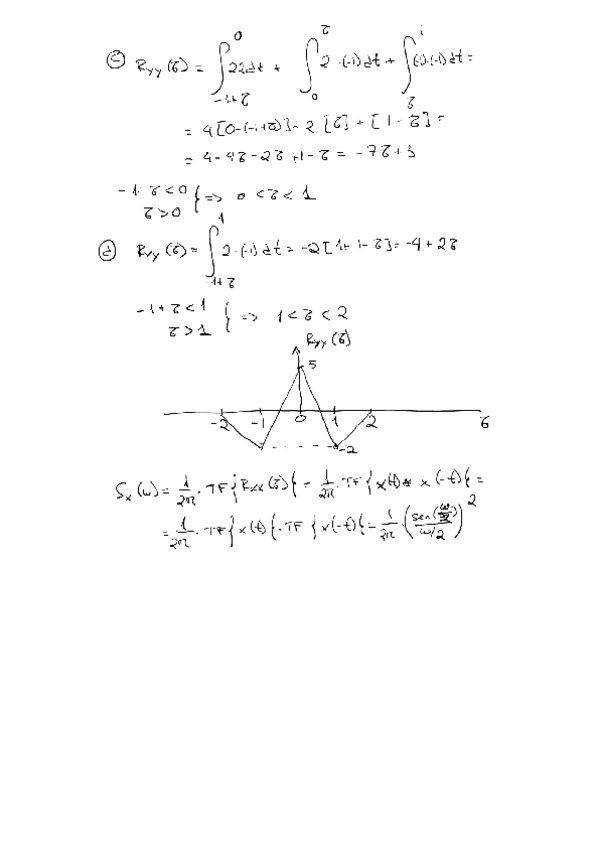 c) Ryy(τ) = ∫_{-1+τ}^{0} 2·2dt + ∫_{0}^{τ} 2·(-1)dt + ∫_{τ}^{1} (-1)·(-1)dt =
= 4[0-(-1+τ)]-2[τ]+[1-τ] =
= 4-4τ-2τ+1-τ = -7τ+5
-1+τ<0
τ>0 } => 0<τ<1
d) Ryy(τ) = ∫_{-1+τ}^{1} 2·(-1)dt = -2[1+1-τ] = -4+2τ
-1+τ<1
τ>1 } => 1<τ<2
Ryy(τ)
5
-2 -1 0 1 2 τ
-2
Sx(ω) = 1/2π · TF{Rxx(τ)} = 1/2π · TF{x(t)* x(-t)} =
= 1/2π · TF{x(t)}·TF{x(-t)} = 1/2π · (sen(ω/2)/ω/2)^2